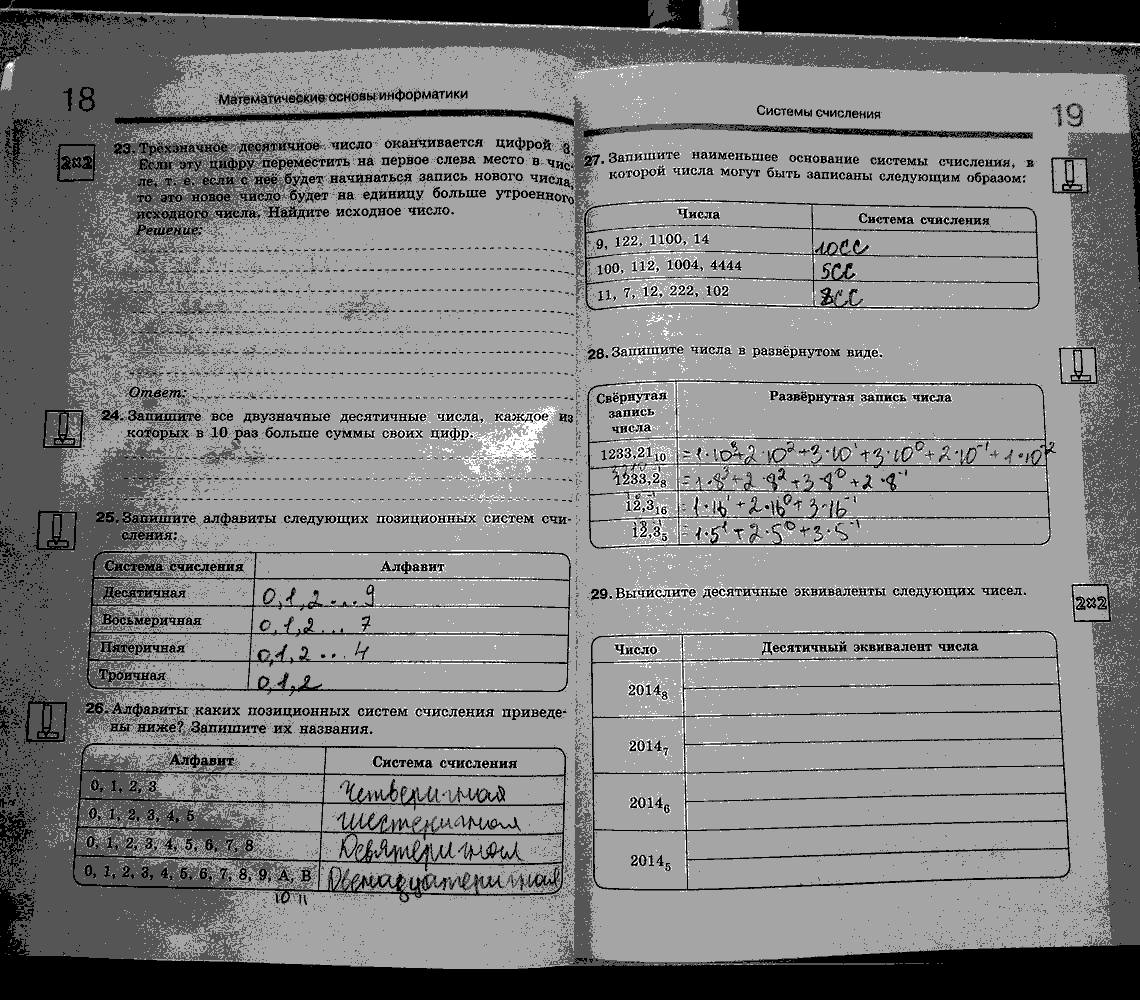 18
Математические основы информатики
2⇄2
23. Трёхзначное десятичное число оканчивается цифрой 3.
Если эту цифру переместить на первое слева место в чис-
ле, т. е. если с неё будет начинаться запись нового числа,
то это новое число будет на единицу больше утроенного
исходного числа. Найдите исходное число.
Решение:
Ответ:
24. Запишите все двузначные десятичные числа, каждое из
которых в 10 раз больше суммы своих цифр.
25. Запишите алфавиты следующих позиционных систем счи-
сления:
Система счисления Алфавит
Десятичная 0,1,2...9
Восьмеричная 0,1,2... 7
Пятеричная 0,1,2...4
Троичная 0,1,2
26. Алфавиты каких позиционных систем счисления приведе-
ны ниже? Запишите их названия.
Алфавит Система счисления
0, 1, 2, 3 Четверичная
0, 1, 2, 3, 4, 5 шестеричная
0, 1, 2, 3, 4, 5, 6, 7, 8 Девятеричная
0, 1, 2, 3, 4, 5, 6, 7, 8, 9, A, B Двенадцатеричная
10 11
Системы счисления
19
27. Запишите наименьшее основание системы счисления, в
которой числа могут быть записаны следующим образом:
Числа Система счисления
9, 122, 1100, 14 10СС
100, 112, 1004, 4444 5СС
11, 7, 12, 222, 102 8СС
28. Запишите числа в развёрнутом виде.
Свёрнутая
запись
числа
Развёрнутая запись числа
1233,21₁₀ =1·10³+2·10²+3·10¹+3·10⁰+2·10⁻¹+1·10⁻²
1233,2₈ =1·8³+2·8²+3·8⁰+2·8⁻¹
12,3₁₆ =1·16¹+2·16⁰+3·16⁻¹
12,3₅ =1·5¹+2·5⁰+3·5⁻¹
29. Вычислите десятичные эквиваленты следующих чисел.
2⇄2
Число Десятичный эквивалент числа
2014₈
2014₇
2014₆
2014₅